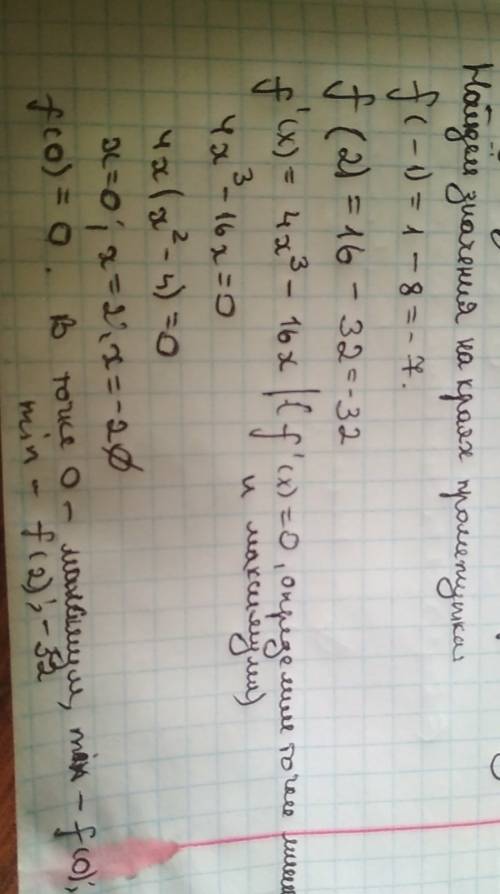 Найдем значения на краях промежутка
f(-1) = 1 - 8 = -7.
f(2) = 16 - 32 = -32
f'(x) = 4x³ - 16x | { f'(x) = 0, определим точки
и максимума)
4x³ - 16x = 0
4x(x² - 4) = 0
x = 0; x = 2; x = -2 ∅
f(0) = 0. В точке 0 - максимум, max - f(0);
min - f(2); -32